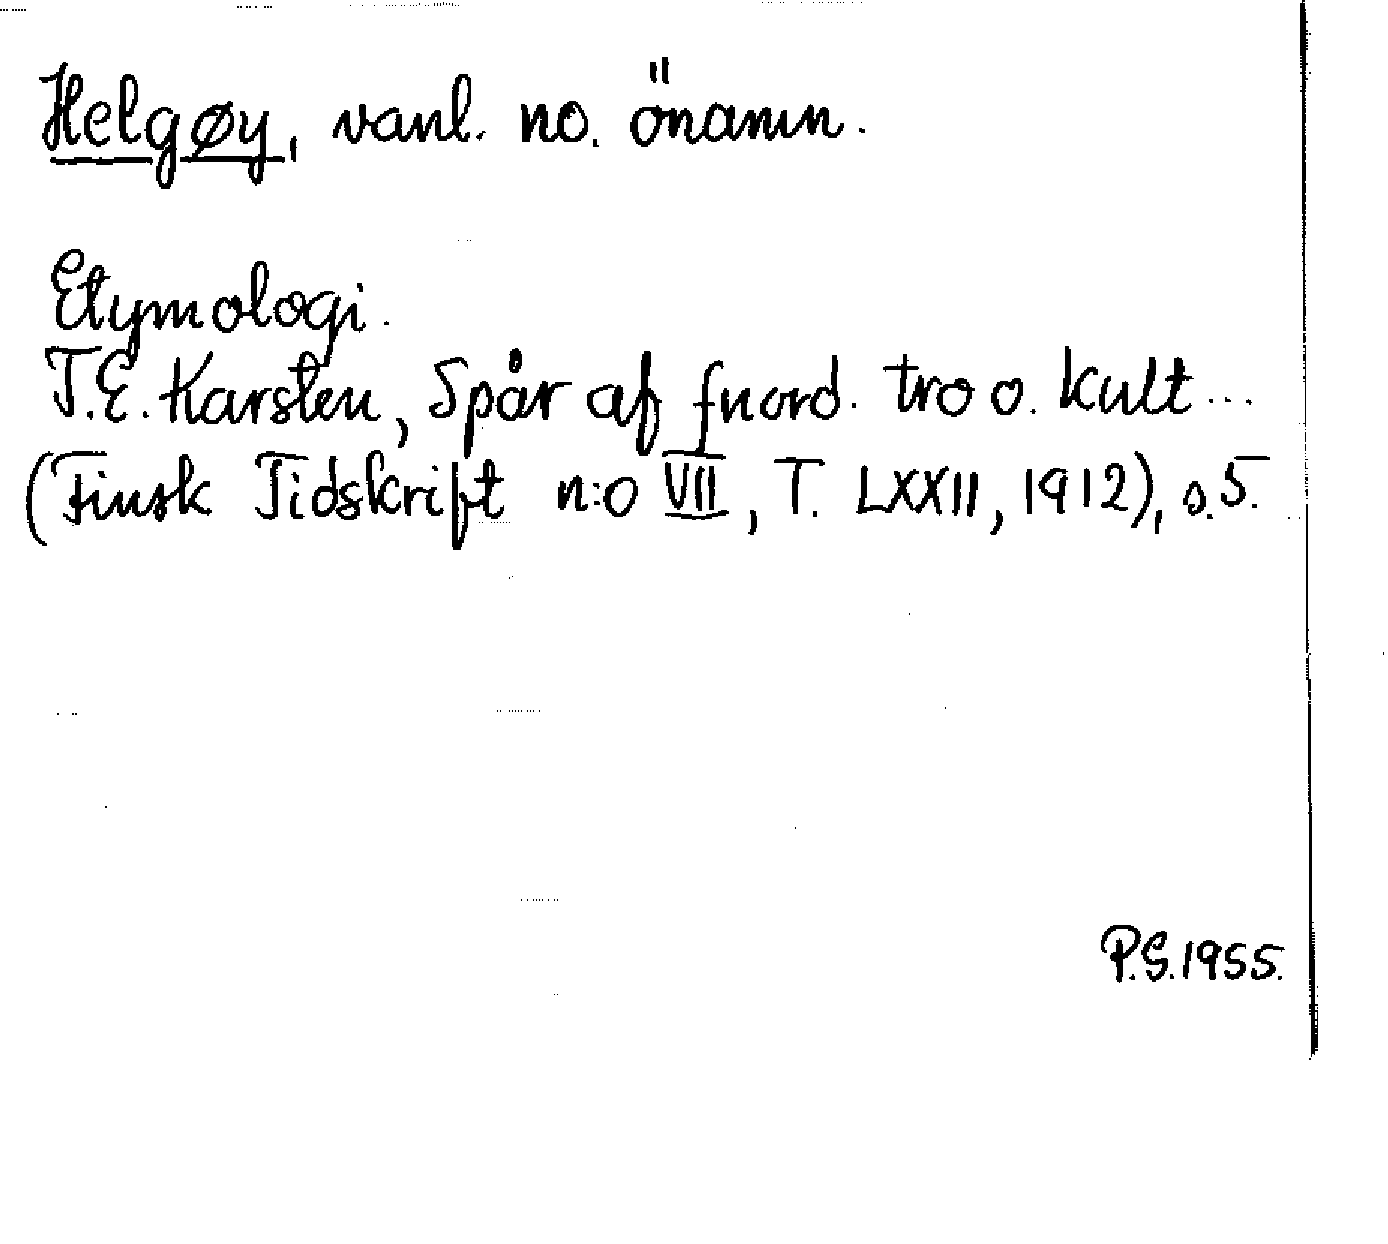 Helgøy, vanl. no. önamn.
Etymologi.
T.E. Karsten, Spår af fnord. tro o. kult...
(Finsk Tidskrift n:o VII, T. LXXII, 1912), s. 5.
P.S. 1955.